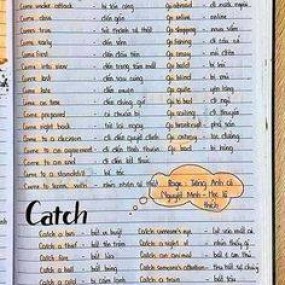 Come under attack - bị tấn công Go abroad - đi nước ngoài
Come close - đến gần Go online - online
Come true - trở thành sự thật Go shopping - mua sắm
Come early - đến sớm Go fishing - đi câu cá
Come first - đến đầu tiên Go crazy - nổi điên
Come into view - đến trong tầm mắt Go bald - bị hói
Come last - đến sau cùng Go blind - bị mù
Come late - đến muộn Go quite - yên lặng
Come on time - đến đúng giờ Go bad
Come prepared - có chuẩn bị Go sailing - đi thuyền
Come right back - trở lại ngay Go bankrupt - phá sản
Come to a decision - đi đến quyết định Go astray
Come to an agreement - đi đến thỏa thuận Go dead
Come to an end - đi đến kết thúc
Come to a standstill - bế tắc
Come to terms with
Page : Tiếng Anh cô
Nguyệt Minh - Học là
thích
Catch
Catch a bus - bắt xe buýt Catch someone's eye
Catch a thief - bắt tên trộm Catch a sight of - nhìn thấy
Catch fire - bắt lửa Catch an animal
Catch a ball - bắt bóng Catch someone's attention - thu hút sự chú ý
Catch a cold - bị cảm lạnh Catch a train - bắt tàu